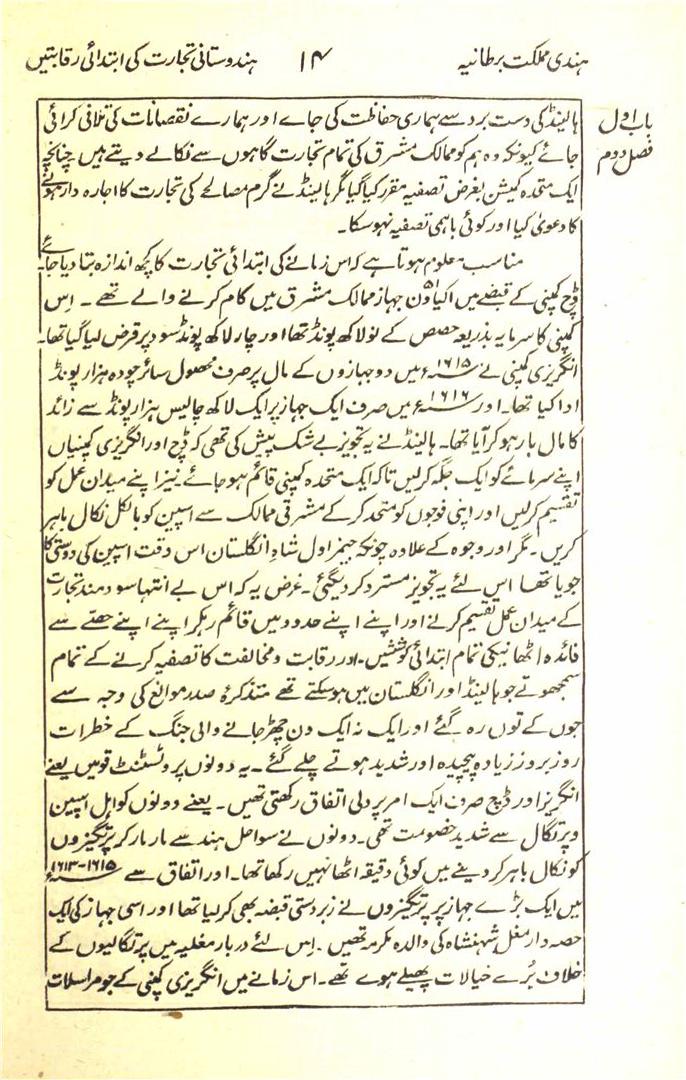 ہندی مملکت برطانیہ ۱۴ ہندوستانی تجارت کی ابتدائی رقابتیں
باب اول
فصل دوم
ہالینڈ کی دست برد سے ہماری حفاظت کی جاے اور ہمارے نقصانات کی تلافی کرائی
جائے کیونکہ وہ ہم کو ممالک مشرق کی تمام تجارت گاہوں سے نکالے دیتے ہیں چنانچہ
ایک متحدہ کمیشن بغرض تصفیہ مقرر کیا گیا مگر ہالینڈ نے گرم مصالحے کی تجارت کا اجارہ دار ہونے
کا دعویٰ کیا اور کوئی باہمی تصفیہ نہوسکا۔
مناسب معلوم ہوتا ہے کہ اس زمانے کی ابتدائی تجارت کا کچھ اندازہ بتا دیا جائے
ڈچ کمپنی کے قبضے میں اکیاون ۵۱ جہاز ممالک مشرق میں کام کرنے والے تھے ۔ اس
کمپنی کا سرمایہ بذریعہ حصص کے نو لاکھ پونڈ تھا اور چار لاکھ پونڈ سود پر قرض لیا گیا تھا۔
انگریزی کمپنی نے ۱۶۱۵ء میں دو جہازوں کے مال پر صرف محصول سائر چودہ ہزار پونڈ
ادا کیا تھا۔ اور ۱۶۱۶ء میں صرف ایک جہاز پر ایک لاکھ چالیس ہزار پونڈ سے زائد
کا مال بار ہو کر آیا تھا۔ ہالینڈ نے یہ تجویز بے شک پیش کی تھی کہ ڈچ اور انگریزی کمپنیاں
اپنے سرمائے کو ایک جگہ کرلیں تاکہ ایک متحدہ کمپنی قائم ہو جائے۔ نیز اپنے میدان عمل کو
تقسیم کرلیں اور اپنی فوجوں کو متحد کرکے مشرقی ممالک سے اسپین کو بالکل نکال باہر
کریں ۔ مگر اور وجوہ کے علاوہ چونکہ جیمز اول شاہ انگلستان اس وقت اسپین کی دوستی کا
جویا تھا اس لئے یہ تجویز مسترد کردیگئی۔ غرض یہ کہ اس بے انتہا سود مند تجارت
کے میدان عمل تقسیم کرنے اور اپنے اپنے حدود میں قائم رہکر اپنے اپنے حصے سے
فائدہ اٹھانیکی تمام ابتدائی کوششیں۔ اور رقابت و مخالفت کا تصفیہ کرنے کے تمام
سمجھوتے جو ہالینڈ اور انگلستان میں ہوسکتے تھے متذکرۂ صدر موانع کی وجہ سے
جوں کے توں رہ گئے اور ایک نہ ایک دن چھڑ جانے والی جنگ کے خطرات
روز بروز زیادہ پیچیدہ اور شدید ہوتے چلے گئے ۔ یہ دونوں پروٹسٹنٹ قومیں یعنے
انگریز اور ڈچ صرف ایک امر پر دلی اتفاق رکھتی تھیں ۔ یعنے دونوں کو اہل اسپین
و پرتگال سے شدید خصومت تھی۔ دونوں نے سواحل ہند سے مار مار کر پرتگیزوں
کو نکال باہر کردینے میں کوئی دقیقہ اٹھا نہیں رکھا تھا۔ اور اتفاق سے ۱۶۱۳-۱۶۱۵ء
میں ایک بڑے جہاز پر پرتگیزوں نے زبردستی قبضہ بھی کرلیا تھا اور اسی جہاز کی ایک
حصہ دار مغل شہنشاہ کی والدہ مکرمہ تھیں ۔ اس لئے دربار مغلیہ میں پرتگالیوں کے
خلاف بُرے خیالات پھیلے ہوے تھے ۔ اس زمانے میں انگریزی کمپنی کے جو مراسلات